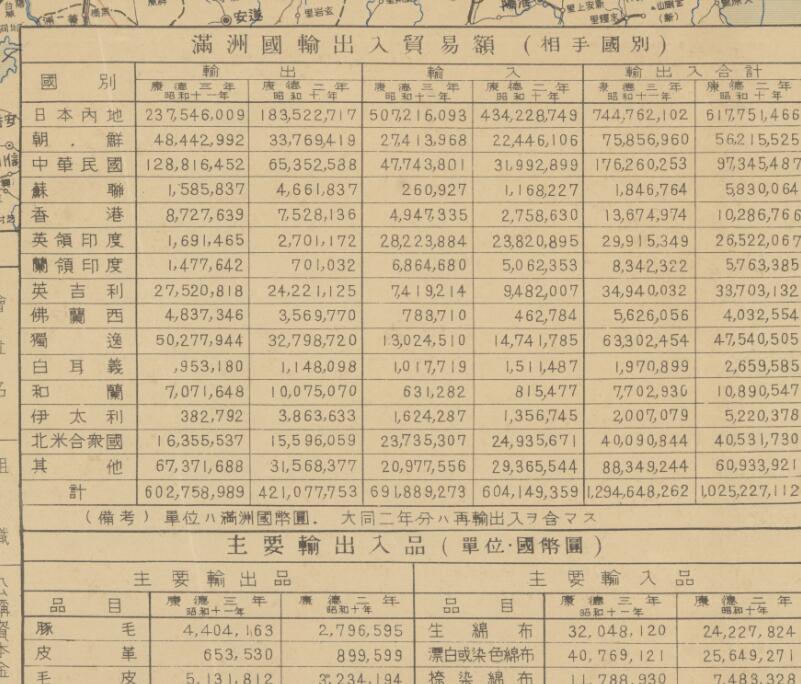 滿洲國輸出入貿易額 (相手國別)
國別 輸出 輸入 輸出入合計
康德三年 昭和十一年 康德二年 昭和十年 康德三年 昭和十一年 康德二年 昭和十年 康德三年 昭和十一年 康德二年 昭和十年
日本內地 237,546,009 183,522,717 507,216,093 434,228,749 744,762,102 617,751,466
朝鮮 48,442,992 33,769,419 27,413,968 22,446,106 75,856,960 56,215,525
中華民國 128,816,452 65,352,588 47,743,801 31,992,899 176,260,253 97,345,487
蘇聯 1,585,837 4,661,837 260,927 1,168,227 1,846,764 5,830,064
香港 8,727,639 7,528,136 4,947,335 2,758,630 13,674,974 10,286,766
英領印度 1,691,465 2,701,172 28,223,884 23,820,895 29,915,349 26,522,067
蘭領印度 1,477,642 701,032 6,864,680 5,062,353 8,342,322 5,763,385
英吉利 27,520,818 24,221,125 7,419,214 9,482,007 34,940,032 33,703,132
佛蘭西 4,837,346 3,569,770 788,710 462,784 5,626,056 4,032,554
獨逸 50,277,944 32,798,720 13,024,510 14,741,785 63,302,454 47,540,505
白耳義 ,953,180 1,148,098 1,017,719 1,511,487 1,970,899 2,659,585
和蘭 7,071,648 10,075,070 631,282 815,477 7,702,930 10,890,547
伊太利 382,792 3,863,633 1,624,287 1,356,745 2,007,079 5,220,378
北米合衆國 16,355,537 15,596,059 23,735,307 24,935,671 40,090,844 40,531,730
其他 67,371,688 31,568,377 20,977,556 29,365,544 88,349,244 60,933,921
計 602,758,989 421,077,753 691,889,273 604,149,359 1,294,648,262 1,025,227,112
(備考) 單位ハ滿洲國幣圓. 大同二年分ハ再輸出入ヲ含マス
主要輸出入品 (單位·國幣圓)
主要輸出品 主要輸入品
品目 康德三年 昭和十一年 康德二年 昭和十年 品目 康德三年 昭和十一年 康德二年 昭和十年
豚毛 4,404,163 2,796,595 生綿布 32,048,120 24,227,824
皮革 653,530 899,599 漂白或染色綿布 40,769,121 25,649,271
毛皮 5,131,812 3,234,194 捺染綿布 11,788,930 7,483,328